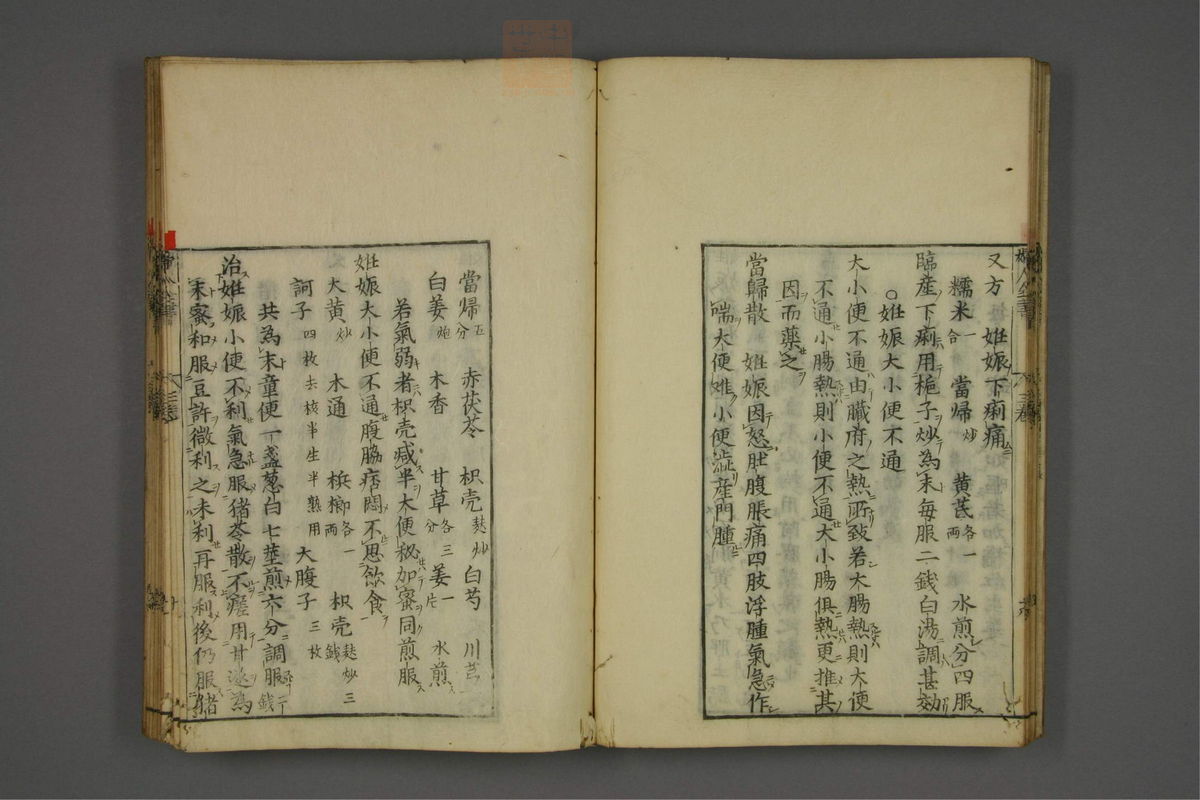 又方 姙娠下痢痛
糯米一合 當歸炒 黄芪各一兩 水煎分四服
臨産下痢用梔子炒為末毎服二錢白湯調甚効
○姙娠大小便不通
大小便不通由臓府之熱所致若大腸熱則大便
不通小腸熱則小便不通大小腸俱熱更推其
因而藥之
當歸散 姙娠因怒肚腹脹痛四肢浮腫氣急作
喘大便难小便澁産門腫
當帰五分 赤茯苓 枳壳麸炒 白芍 川芎
白姜炮 木香 甘草各三分 姜一片 水煎
若氣弱者枳壳减半大便秘加蜜同煎服
姙娠大小便不通腹脇痞悶不思飲食
大黄炒 木通 梹榔各一兩 枳壳麸炒三錢
訶子四枚去核半生半熟用 大腹子三枚
共為末童便一盞葱白七莖煎六分調服二錢
治姙娠小便不利氣急服猪苓散不瘥用甘遂為
末蜜和服豆許微利之未利再服利後仍服猪